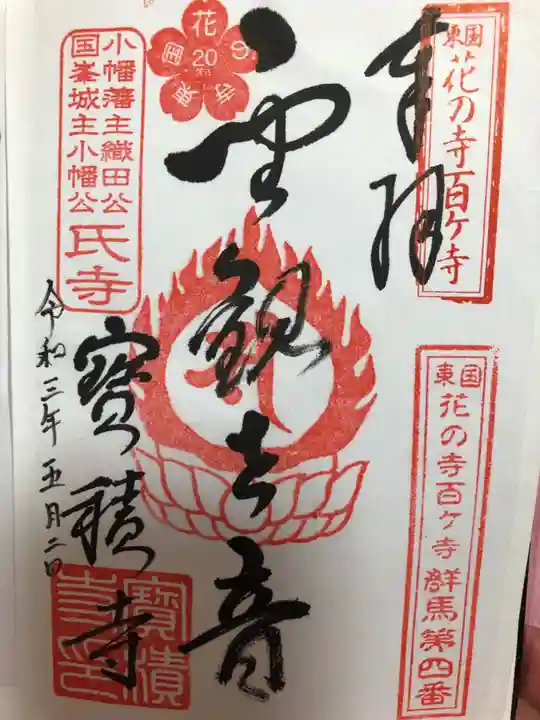 奉拝
東国花の寺百ケ寺
東国花の寺百ケ寺 群馬第四番
聖観世音
花
20
小幡藩主織田公
国峯城主小幡公
氏寺
寶積寺
令和三年五月二日
寶積寺印